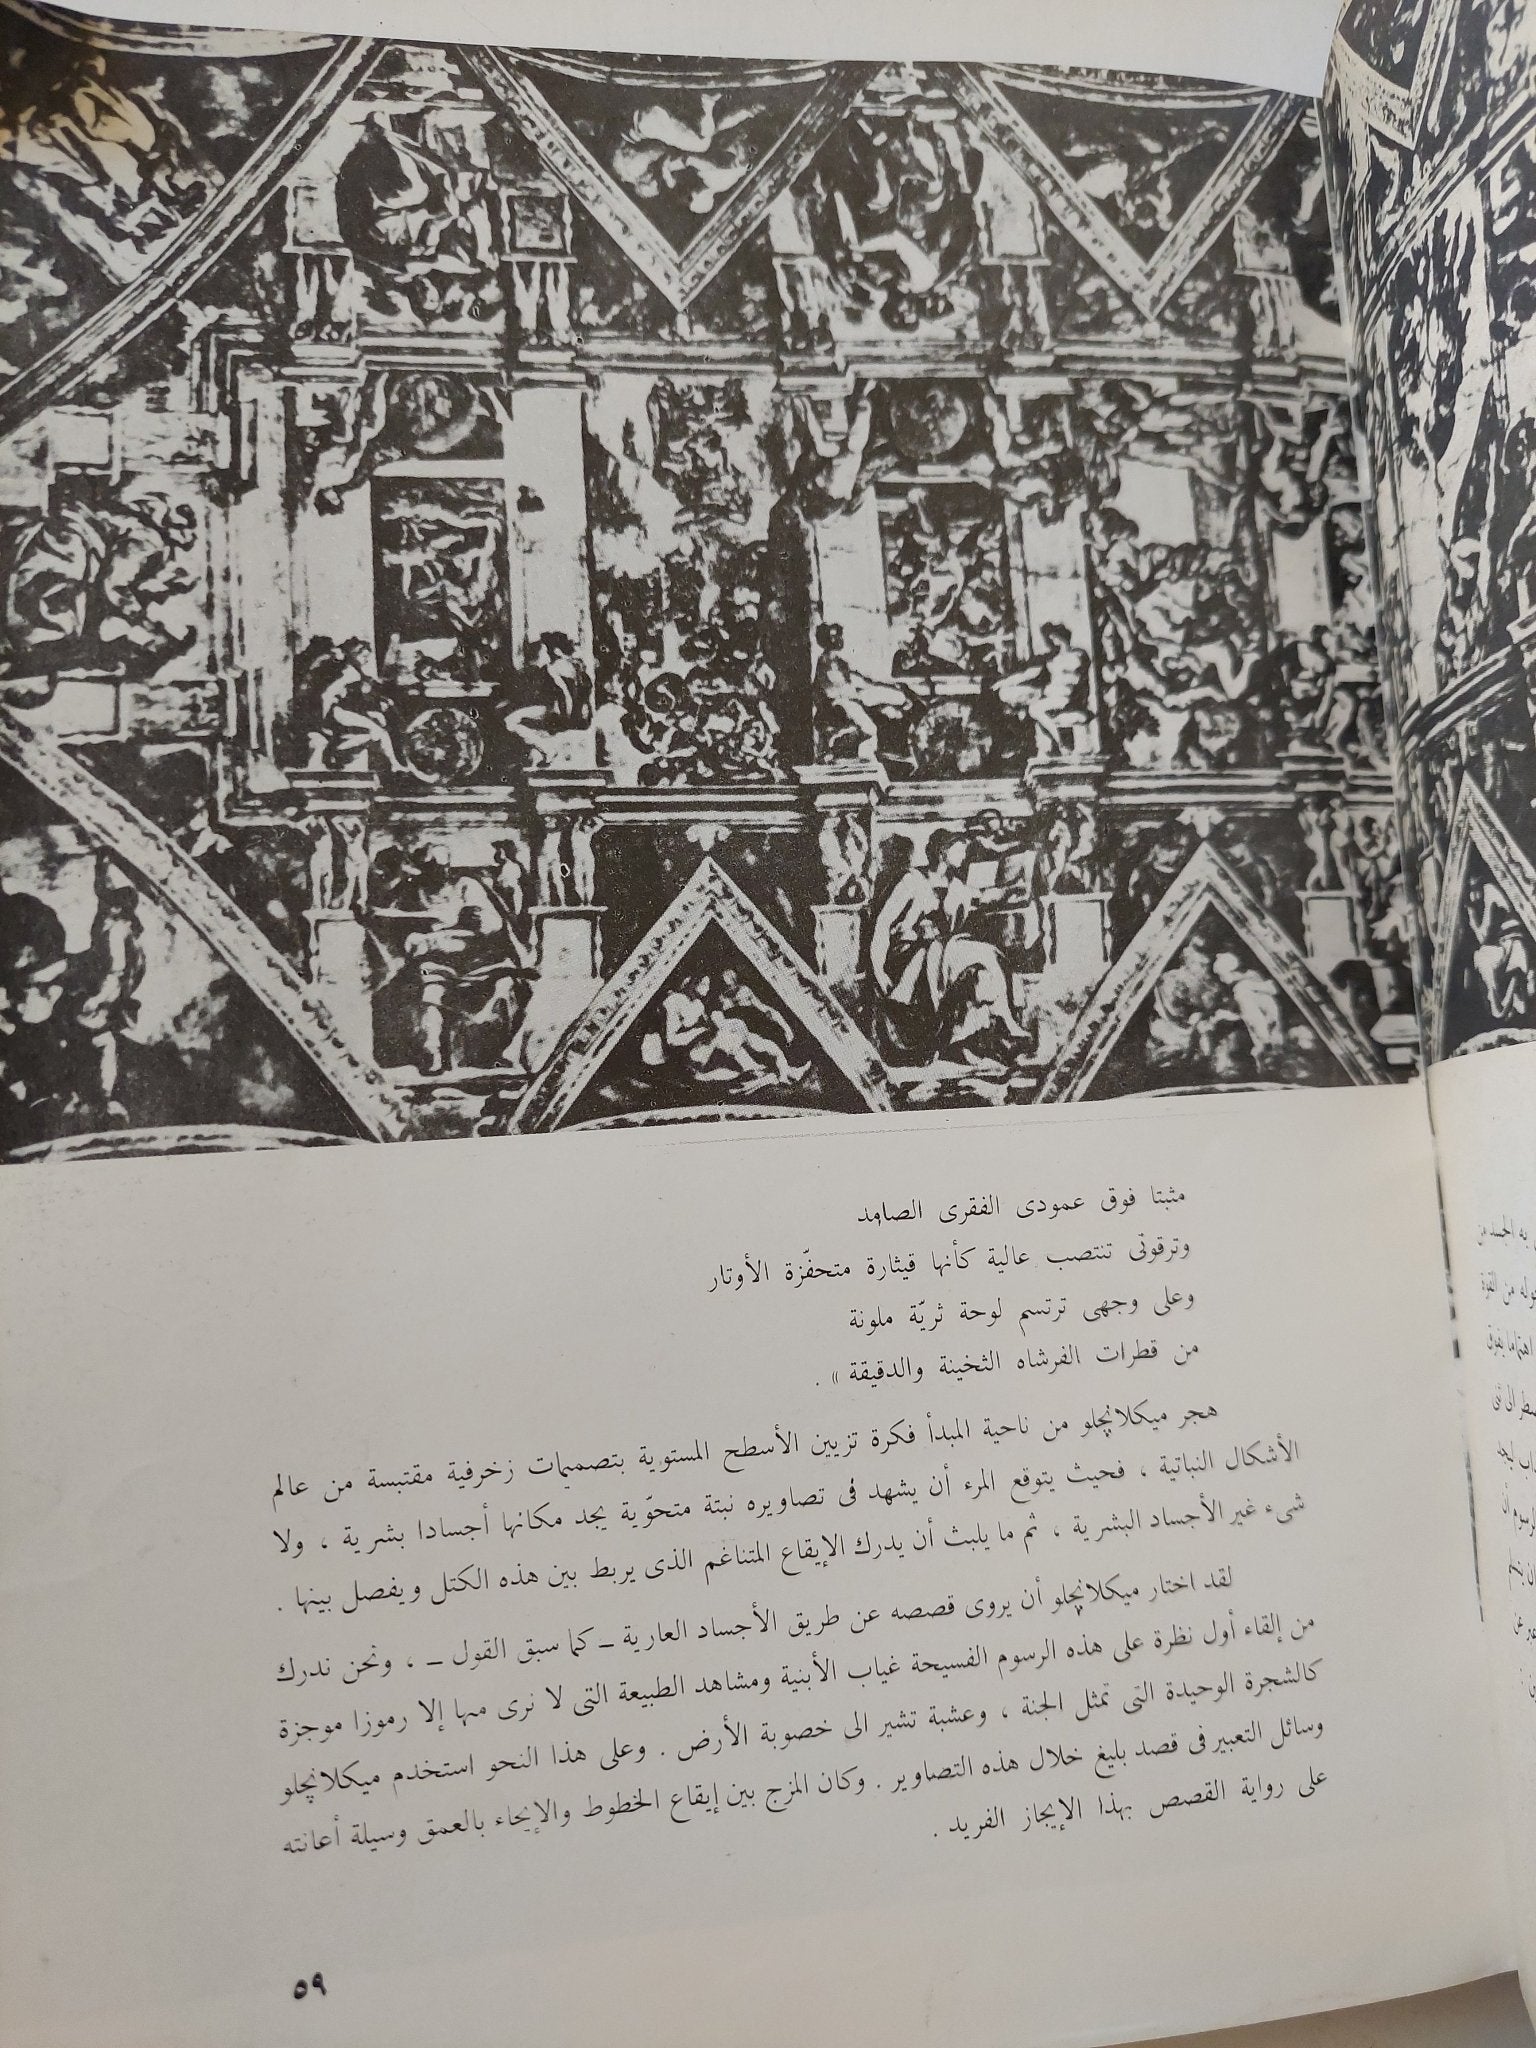 مثبتا فوق عمودى الفقرى الصامد
وترقوتى تنتصب عالية كأنها قيثارة متحفّزة الأوتار
وعلى وجهى ترتسم لوحة ثريّة ملونة
من قطرات الفرشاه الثخينة والدقيقة » .
هجر ميكلانچلو من ناحية المبدأ فكرة تزيين الأسطح المستوية بتصميمات زخرفية مقتبسة من عالم
الأشكال النباتية ، فحيث يتوقع المرء أن يشهد فى تصاويره نبتة متحوّية يجد مكانها أجسادا بشرية ، ولا
شىء غير الأجساد البشرية ، ثم ما يلبث أن يدرك الإيقاع المتناغم الذى يربط بين هذه الكتل ويفصل بينها .
لقد اختار ميكلانچلو أن يروى قصصه عن طريق الأجساد العارية ــ كما سبق القول ــ ، ونحن ندرك
من إلقاء أول نظرة على هذه الرسوم الفسيحة غياب الأبنية ومشاهد الطبيعة التى لا نرى منها إلا رموزا موجزة
كالشجرة الوحيدة التى تمثل الجنة ، وعشبة تشير الى خصوبة الأرض . وعلى هذا النحو استخدم ميكلانچلو
وسائل التعبير فى قصد بليغ خلال هذه التصاوير . وكان المزج بين إيقاع الخطوط والإيحاء بالعمق وسيلة أعانته
على رواية القصص بهذا الإيجاز الفريد .
٥٩
به الجسد من
من القوة
اهتماما يفوق